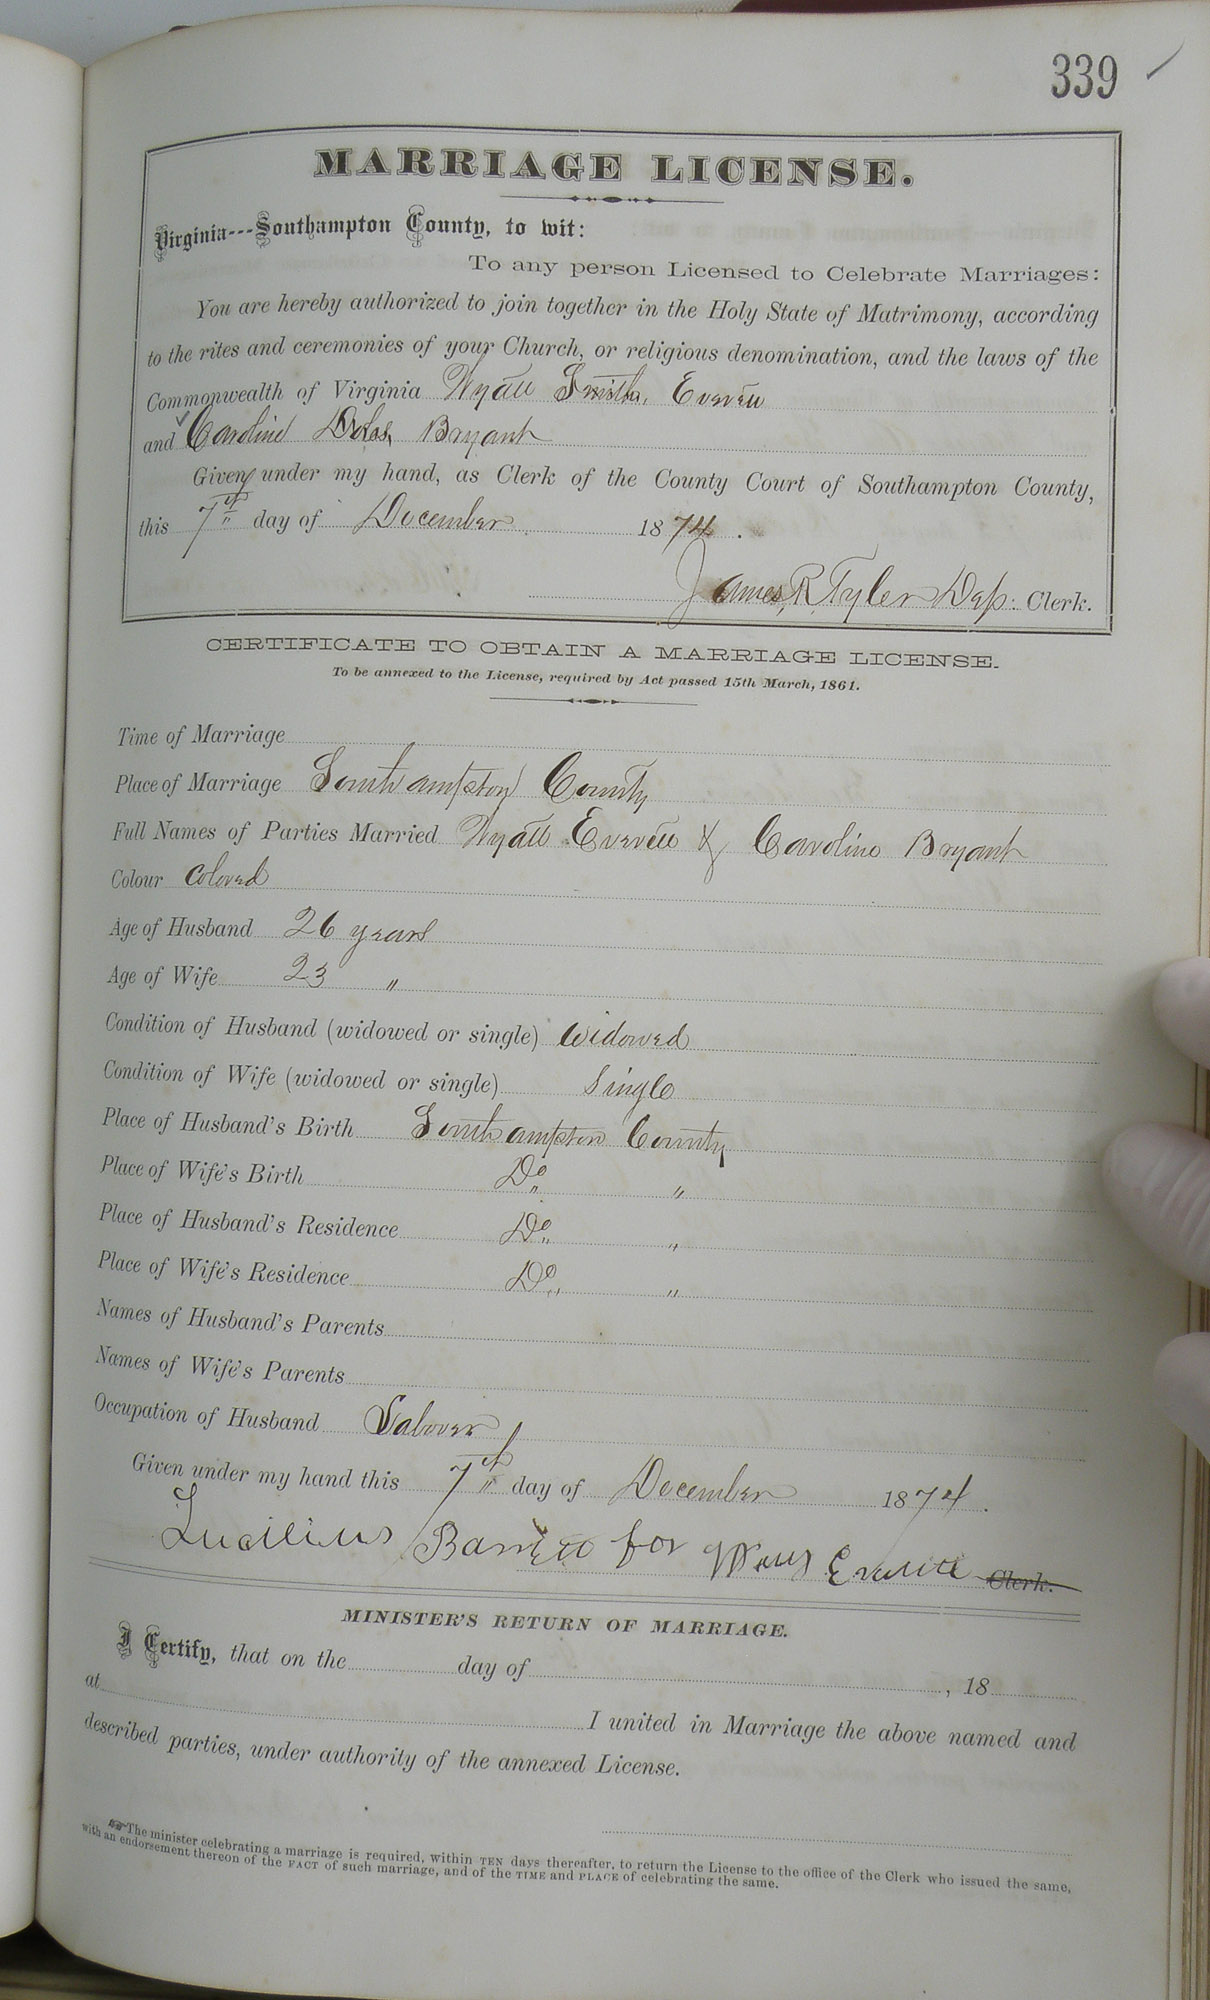 339
MARRIAGE LICENSE.
Virginia---Southampton County, to wit:
To any person Licensed to Celebrate Marriages:
You are hereby authorized to join together in the Holy State of Matrimony, according
to the rites and ceremonies of your Church, or religious denomination, and the laws of the
Commonwealth of Virginia Wyatt Smith, Everett
and Caroline Bryant
Given under my hand, as Clerk of the County Court of Southampton County,
this 7th day of December 1874.
James R Tyler Dep: Clerk.
CERTIFICATE TO OBTAIN A MARRIAGE LICENSE.
To be annexed to the License, required by Act passed 15th March, 1861.
Time of Marriage
Place of Marriage Southampton County
Full Names of Parties Married Wyatt Everett & Caroline Bryant
Colour Colored
Age of Husband 26 years
Age of Wife 23 "
Condition of Husband (widowed or single) Widowed
Condition of Wife (widowed or single) Single
Place of Husband's Birth Southampton County
Place of Wife's Birth Do "
Place of Husband's Residence Do "
Place of Wife's Residence Do "
Names of Husband's Parents
Names of Wife's Parents
Occupation of Husband Laborer
Given under my hand this 7th day of December 1874.
Lucilius Barrett for Clerk.
MINISTER'S RETURN OF MARRIAGE.
I Certify, that on the day of , 18
at I united in Marriage the above named and
described parties, under authority of the annexed License.
☞The minister celebrating a marriage is required, within TEN days thereafter, to return the License to the office of the Clerk who issued the same,
with an endorsement thereon of the FACT of such marriage, and of the TIME and PLACE of celebrating the same.